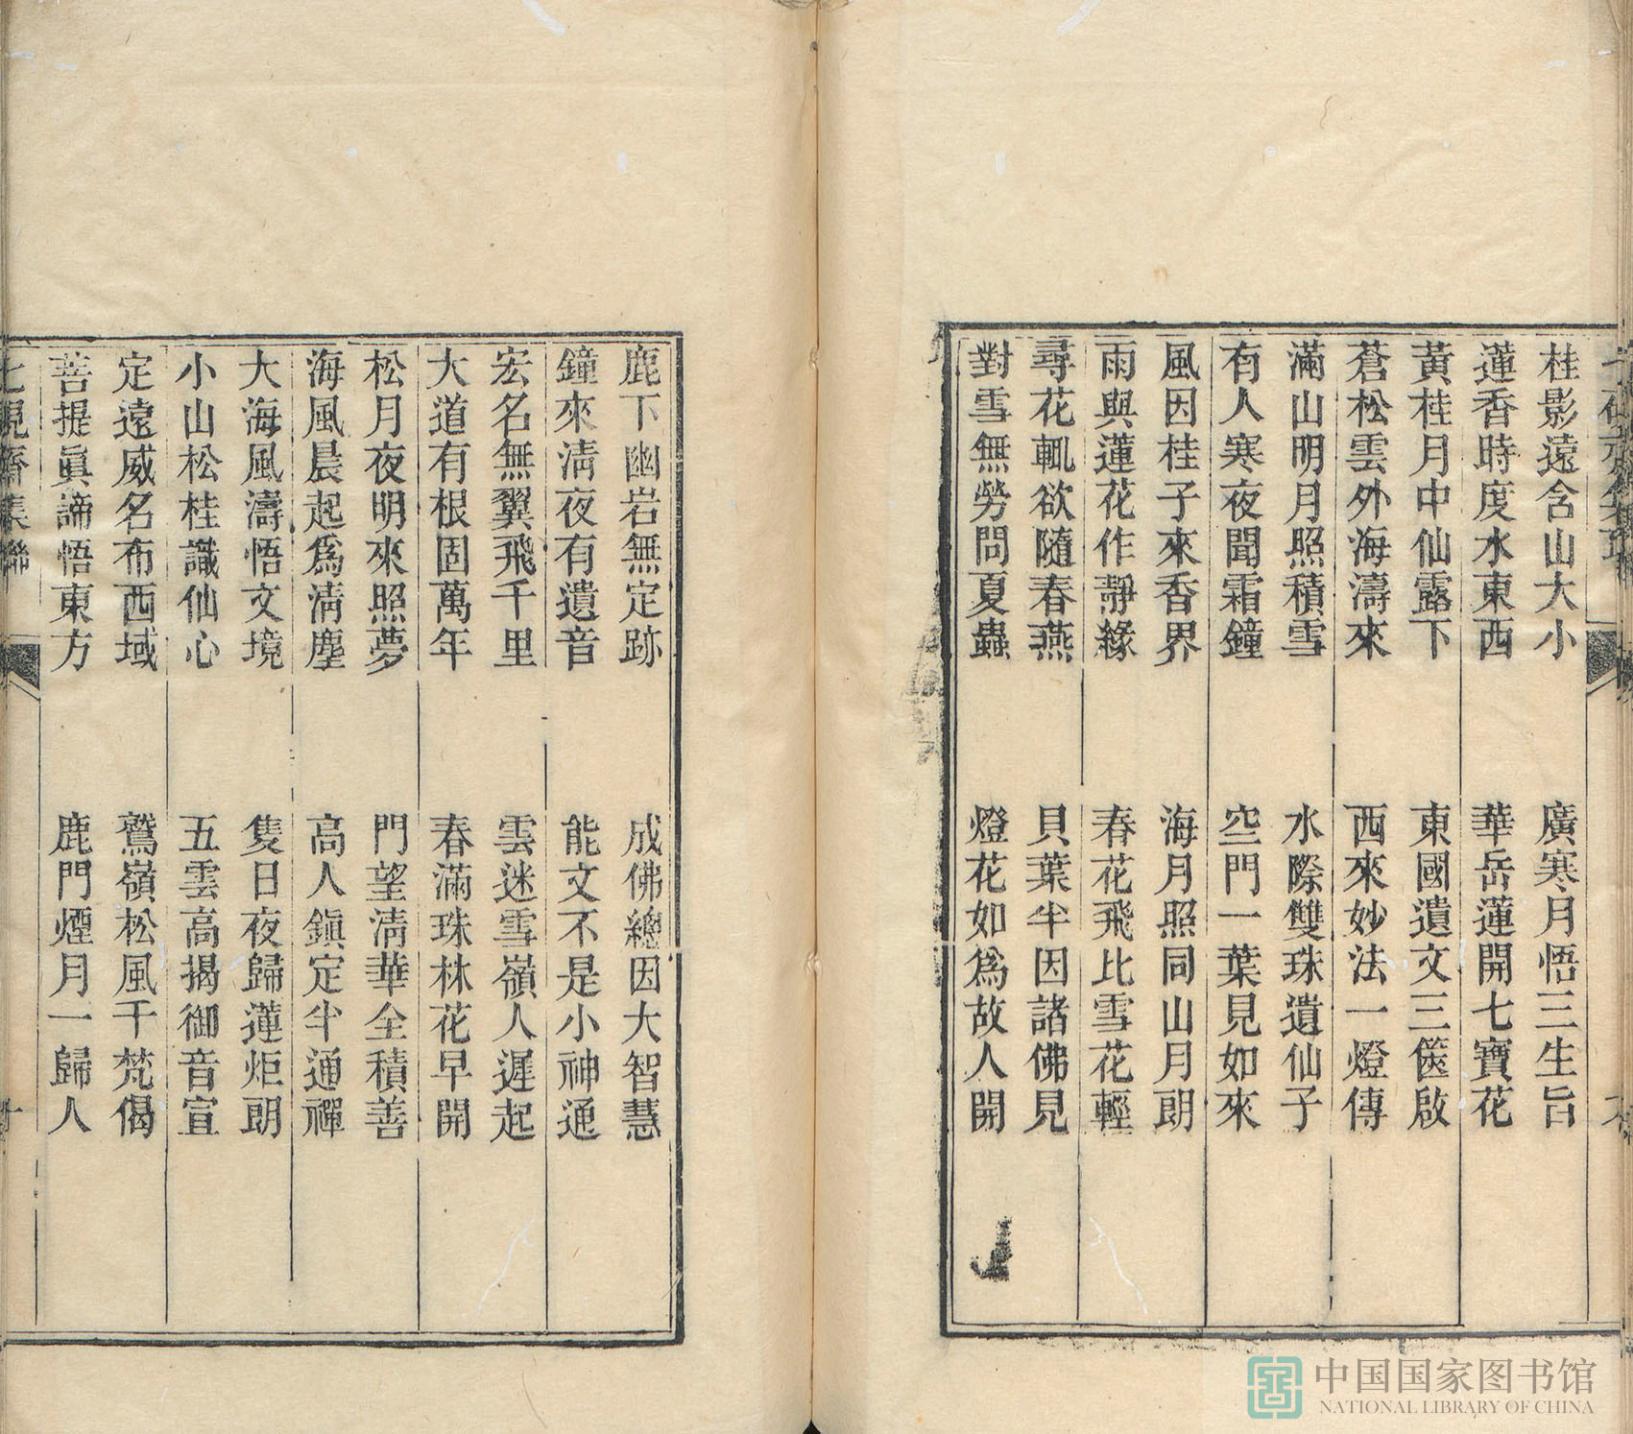 桂影遠含山大小　廣寒月悟三生旨
蓮香時度水東西　華岳蓮開七寶花
黃桂月中仙露下　東國遺文三篋啟
蒼松雲外海濤來　西來妙法一燈傳
滿山明月照積雪　水際雙珠遺仙子
有人寒夜聞霜鐘　空門一葉見如來
風因桂子來香界　海月照同山月朗
雨與蓮花作靜緣　春花飛比雪花輕
尋花輒欲隨春燕　貝葉半因諸佛見
對雪無勞問夏蟲　燈花如為故人開
鹿下幽岩無定跡　成佛總因大智慧
鐘來清夜有遺音　能文不是小神通
宏名無翼飛千里　雲迷雪嶺人遲起
大道有根固萬年　春滿珠林花早開
松月夜明來照夢　門望清華全積善
海風晨起為清塵　高人鎮定半通禪
大海風濤悟文境　隻日夜歸蓮炬朗
小山松桂識仙心　五雲高揭御音宣
定遠威名布西域　鷲嶺松風千梵偈
菩提眞諦悟東方　鹿門煙月一歸人
齋集聯
中国国家图书馆
NATIONAL LIBRARY OF CHINA